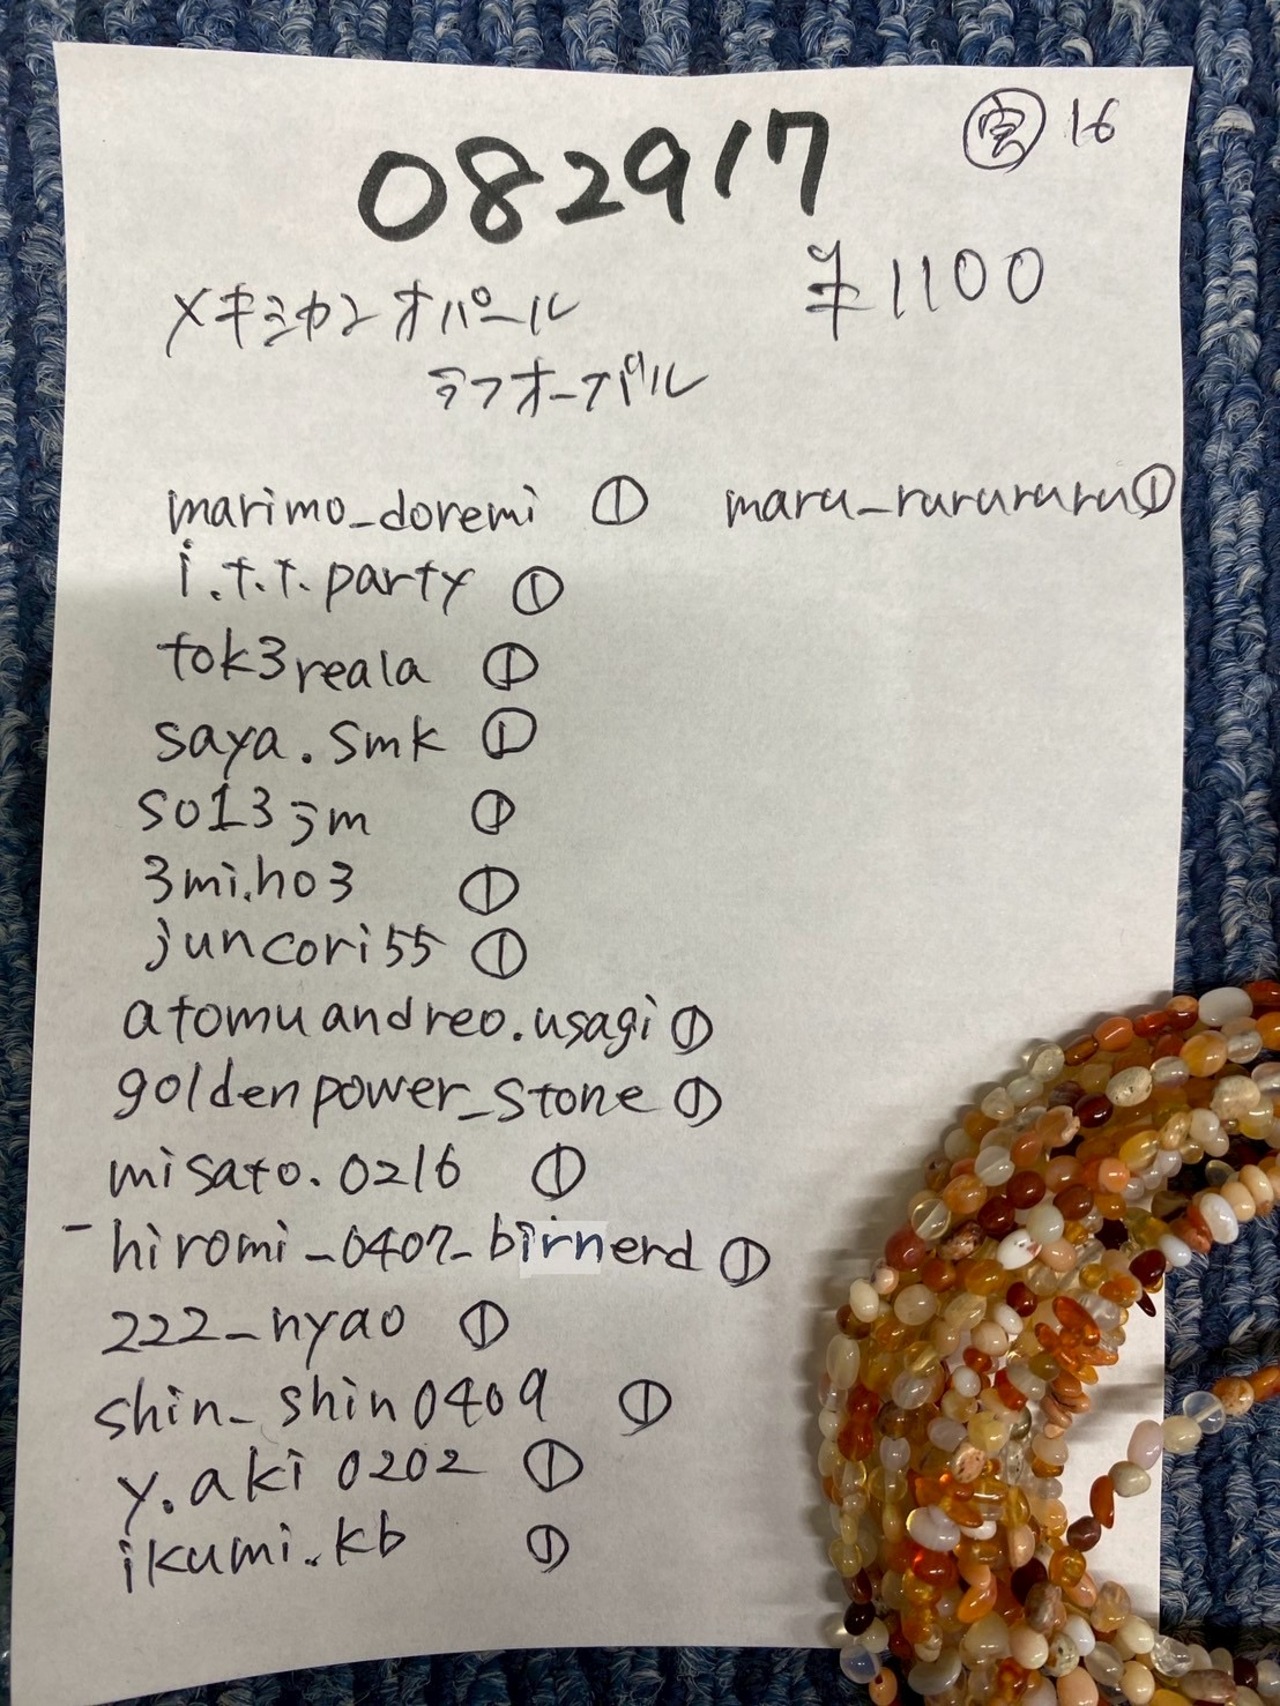 082917
㊪ 16
¥1100
メキシカンオパール
ラフオーバル
marimo_doremi ①
maru_rurururu ①
i.t.t.party ①
tok3reala ①
saya.smk ①
so13jm ①
3mi.ho3 ①
juncori55 ①
atomuandreo.usagi ①
goldenpower_stone ①
misato.0216 ①
-hiromi_0407_birnerd ①
222_nyao ①
shin_shin0409 ①
y.aki0202 ①
ikumi.kb ①